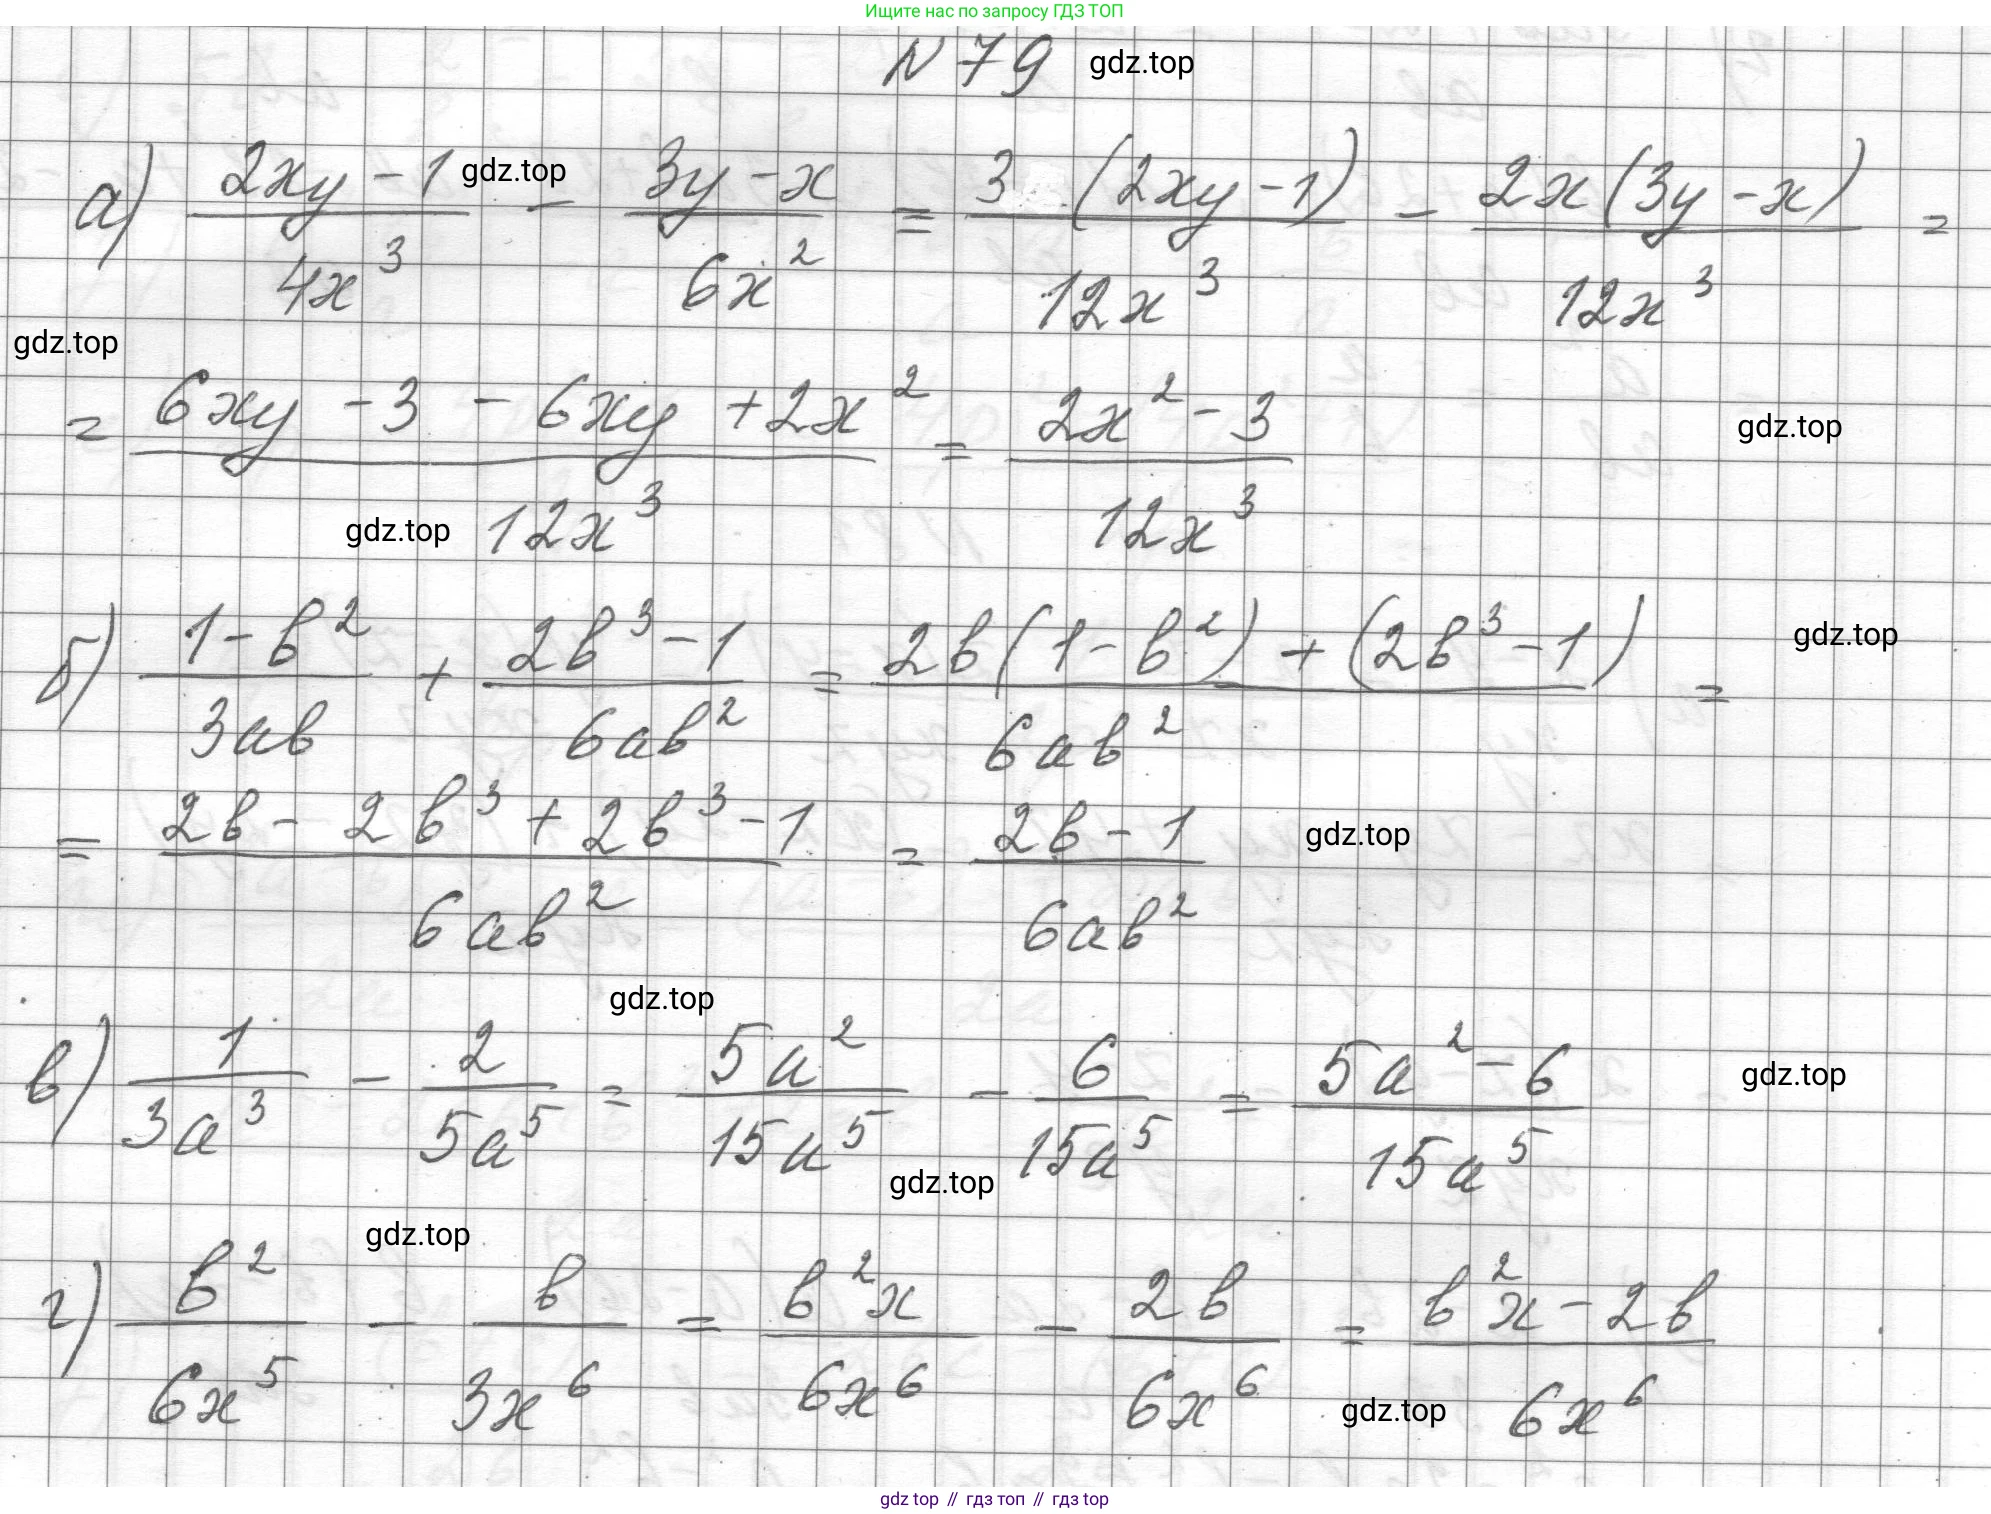 Ищите нас по запросу ГДЗ ТОП
N 79 gdz.top
а) (2xy - 1)/(4x³) - (3y - x)/(6x²) = (3(2xy - 1))/(12x³) - (2x(3y - x))/(12x³) =
gdz.top
gdz.top
= (6xy - 3 - 6xy + 2x²)/(12x³) = (2x² - 3)/(12x³)
gdz.top
gdz.top
б) (1 - b²)/(3ab) + (2b³ - 1)/(6ab²) = (2b(1 - b²) + (2b³ - 1))/(6ab²) =
gdz.top
= (2b - 2b³ + 2b³ - 1)/(6ab²) = (2b - 1)/(6ab²)
gdz.top
gdz.top
в) 1/(3a³) - 2/(5a⁵) = (5a²)/(15a⁵) - 6/(15a⁵) = (5a² - 6)/(15a⁵)
gdz.top
gdz.top
gdz.top
г) b²/(6x⁵) - b/(3x⁶) = (b²x)/(6x⁶) - (2b)/(6x⁶) = (b²x - 2b)/(6x⁶)
gdz.top
gdz top // гдз топ // gdz top